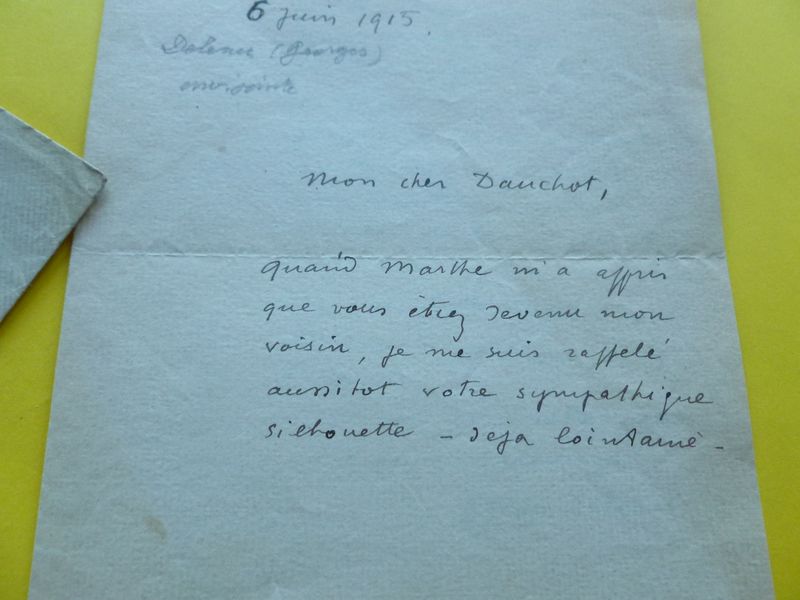 6 juin 1915.
(Georges)
Mon cher Dauchot,
quand Marthe m'a appris
que vous étiez devenu mon
voisin, je me suis rappelé
aussitot votre sympathique
silhouette – déja lointaine –